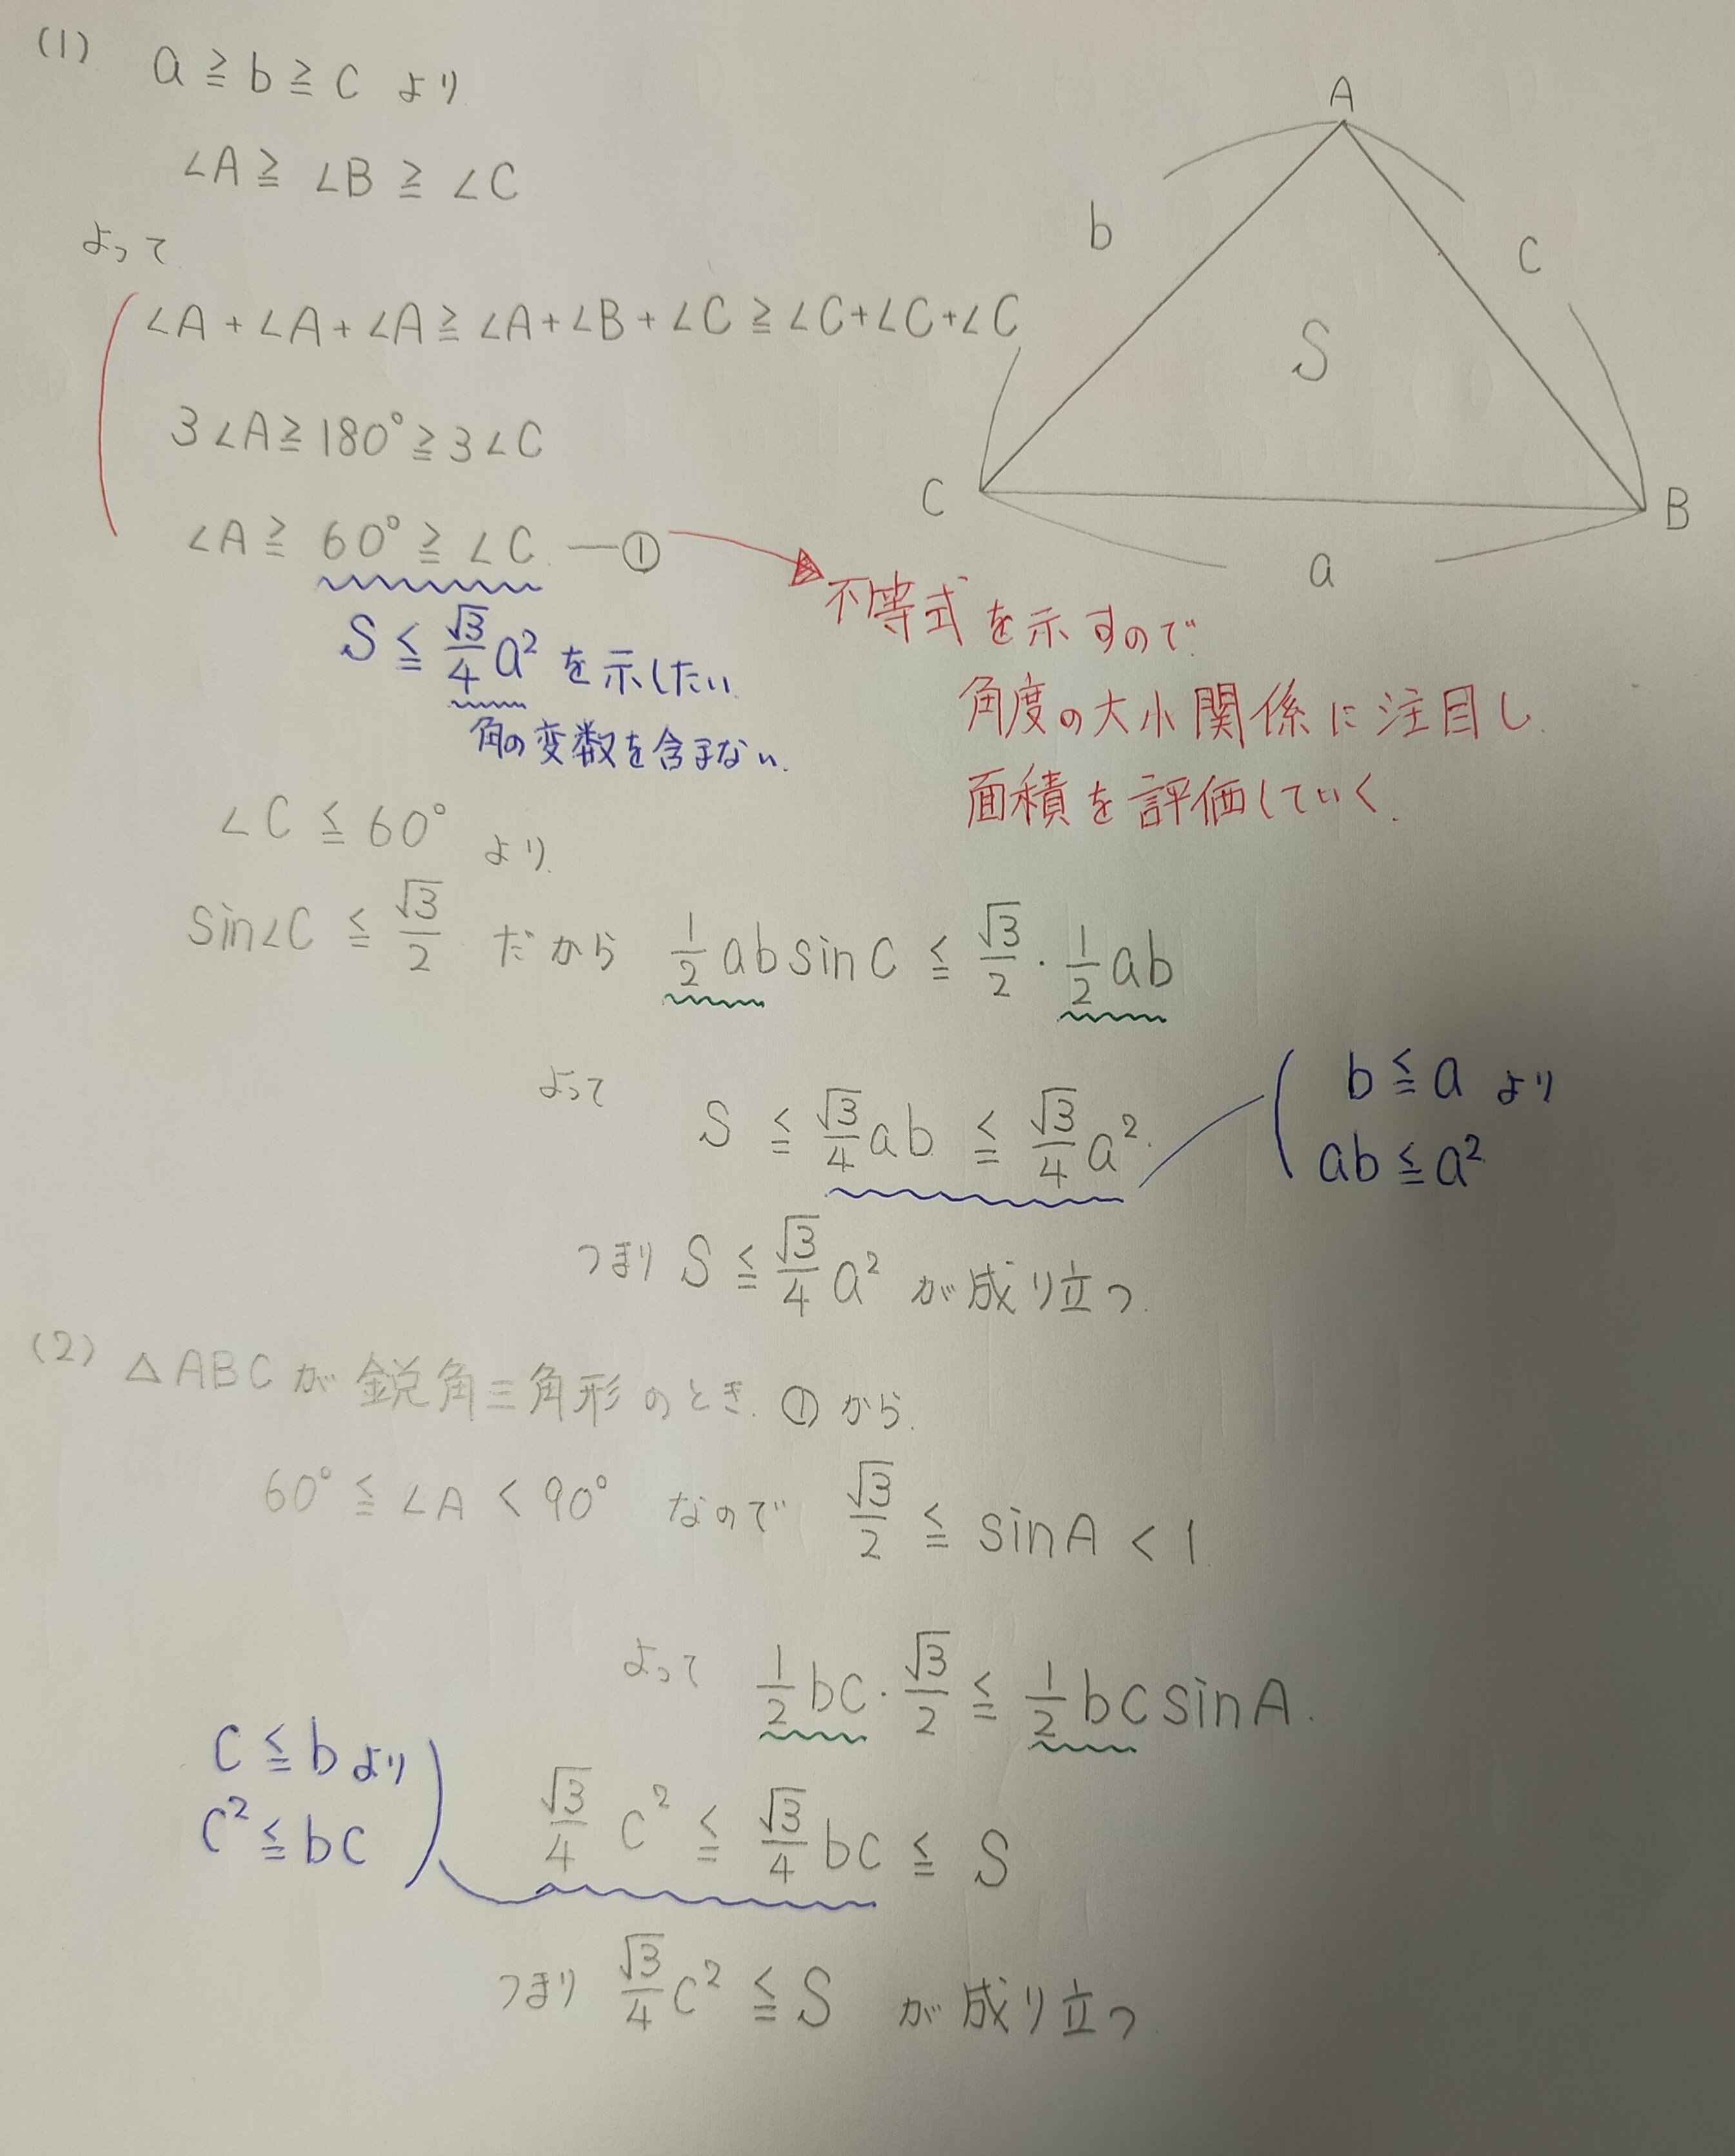 (1) a ≧ b ≧ c より
∠A ≧ ∠B ≧ ∠C
よって
∠A + ∠A + ∠A ≧ ∠A + ∠B + ∠C ≧ ∠C + ∠C + ∠C
3∠A ≧ 180° ≧ 3∠C
∠A ≧ 60° ≧ ∠C ―①
不等式を示すので
角度の大小関係に注目し
面積を評価していく.
S ≦ √3/4 a² を示したい
角の変数を含まない.
∠C ≦ 60° より
sin∠C ≦ √3/2 だから 1/2 ab sin C ≦ √3/2 · 1/2 ab
よって S ≦ √3/4 ab ≦ √3/4 a².
b ≦ a より
ab ≦ a²
つまり S ≦ √3/4 a² が成り立つ
(2) △ABC が 鋭角三角形のとき. ①から.
60° ≦ ∠A < 90° なので √3/2 ≦ sin A < 1
よって 1/2 bc · √3/2 ≦ 1/2 bc sin A.
c ≦ b より
c² ≦ bc
√3/4 c² ≦ √3/4 bc ≦ S
つまり √3/4 c² ≦ S が成り立つ
A
b
c
S
C
B
a